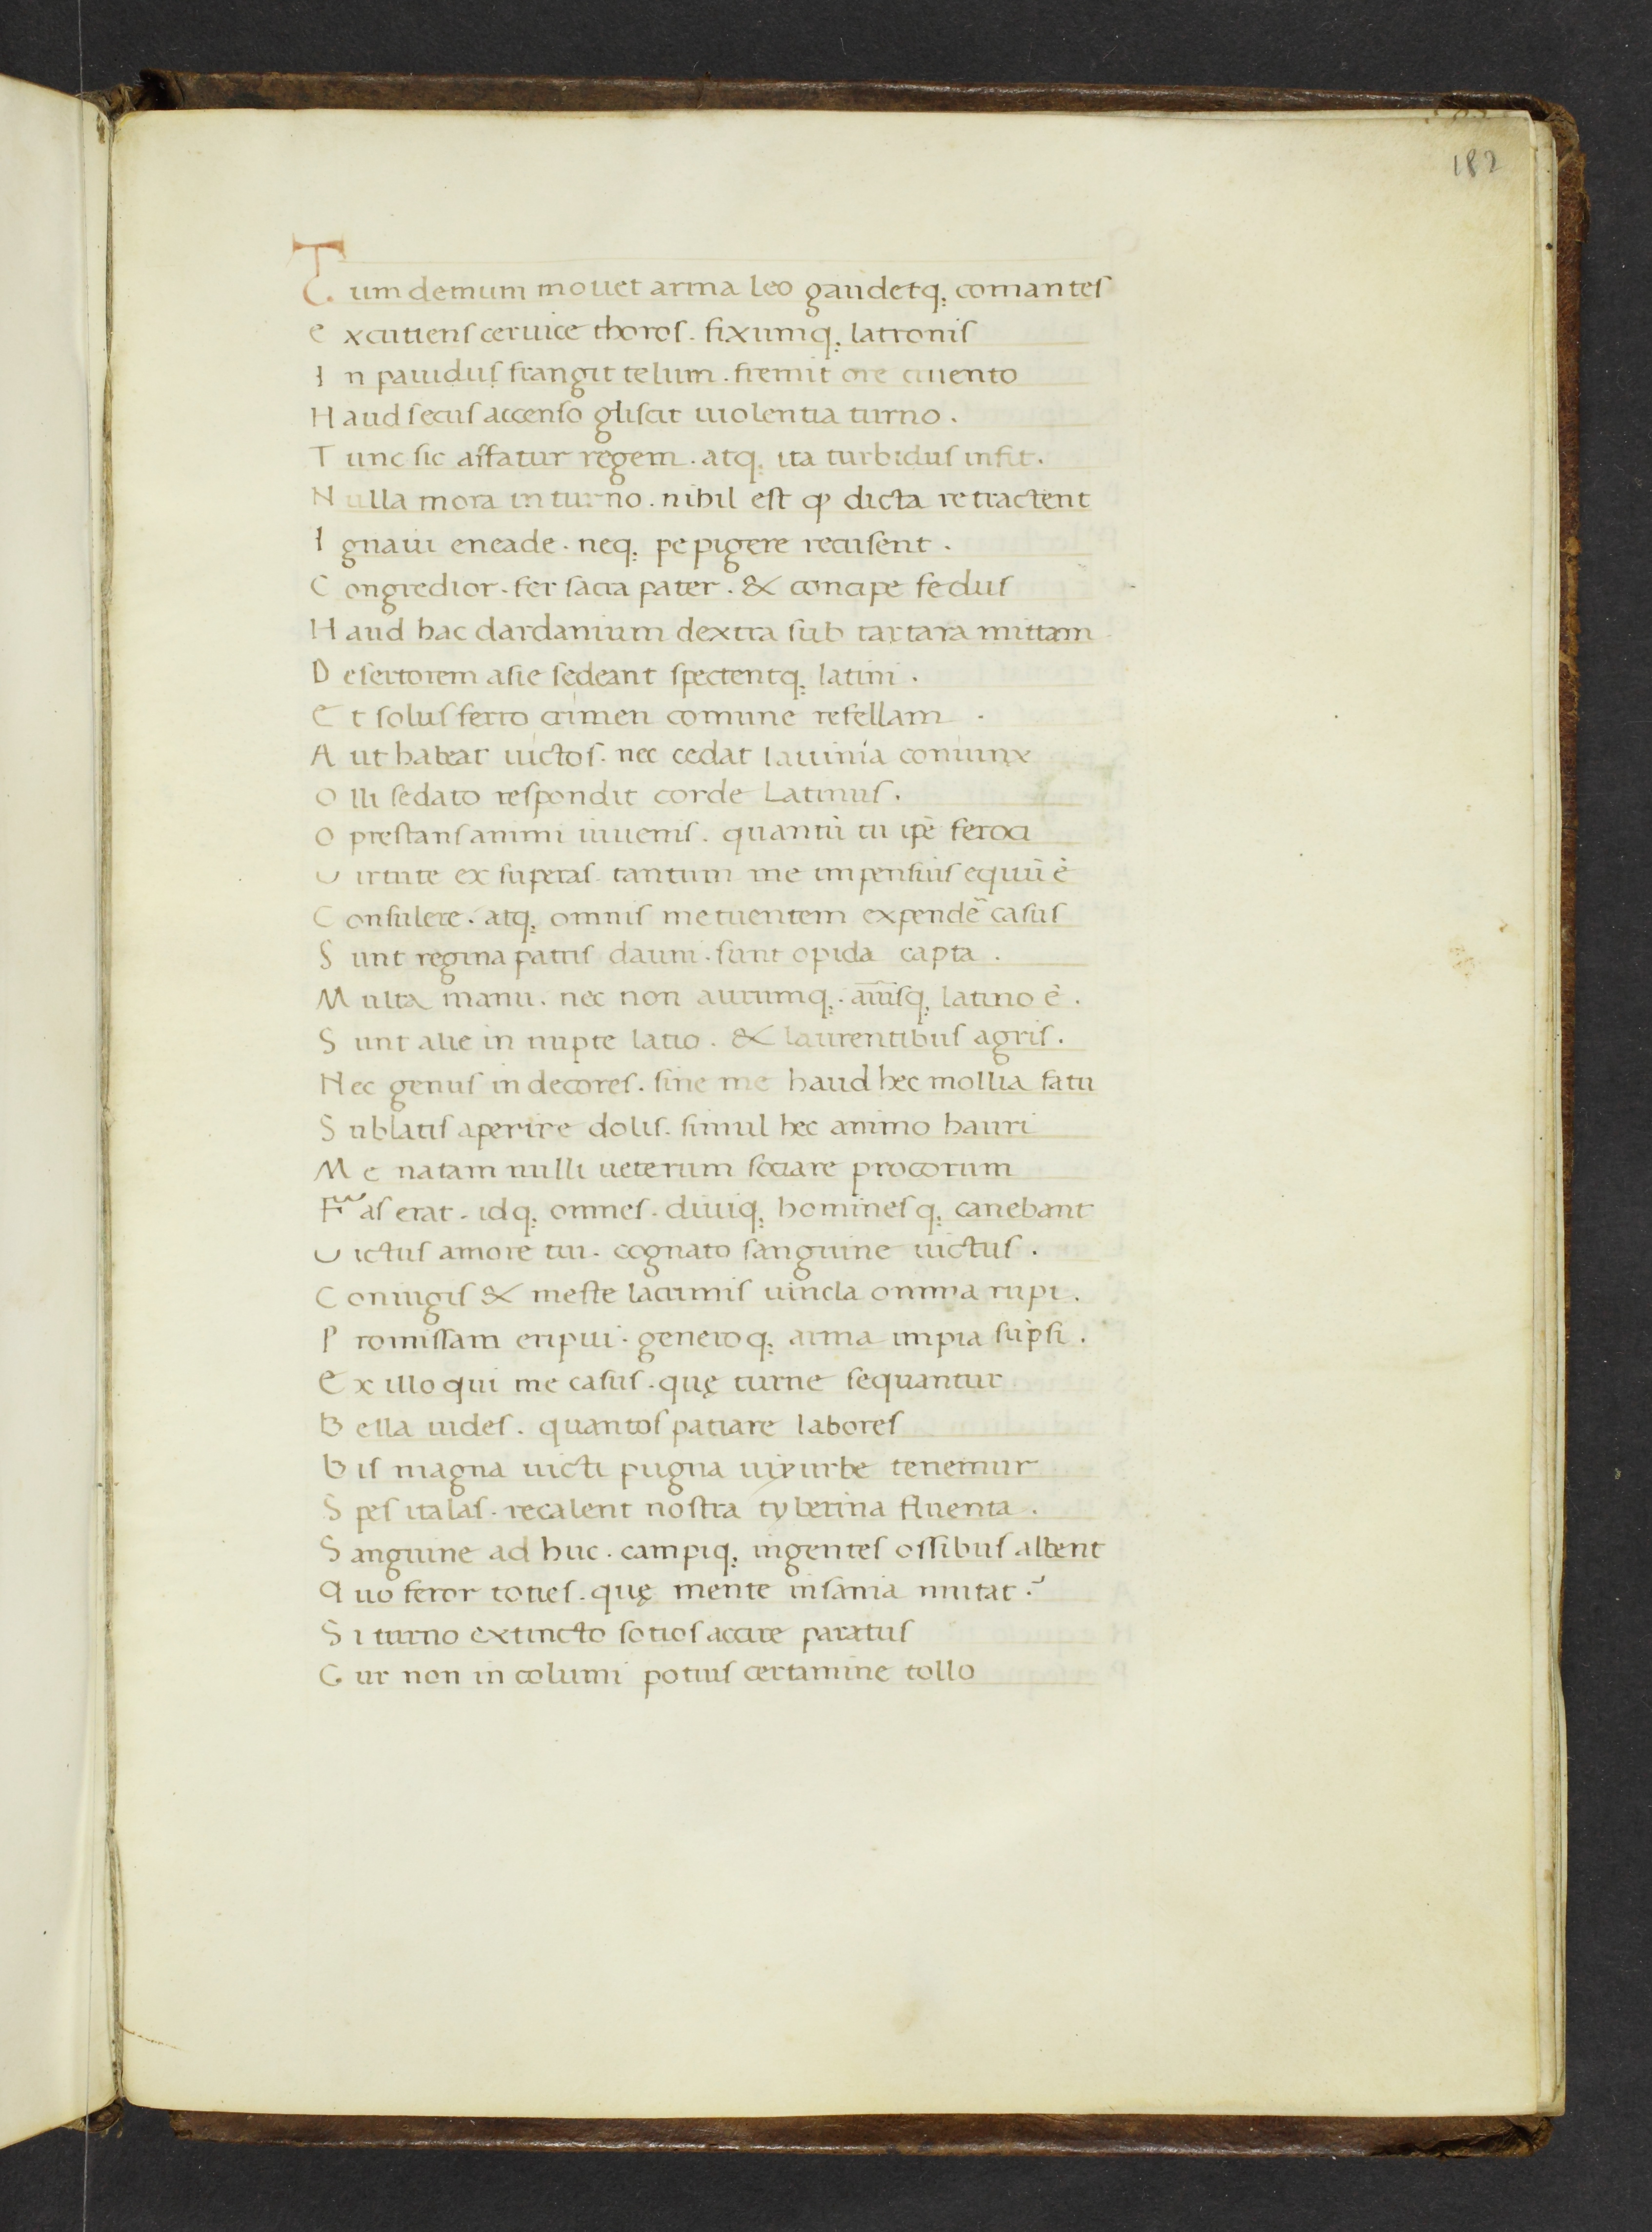 182
Tum demum mouet arma leo gaudetq; comantes
excutiens ceruice thoros. fixumq; latronis
In pauidus frangit telum. fremit ore cruento
Haud secus accenso gliscit uiolentia turno.
Tunc sic affatur regem. atq; ita turbidus infit.
Nulla mora in turno. nihil est qͥ dicta retractent
Ignaui eneade. neq; pepigere recusent.
Congredior. fer sacra pater. & concipe fedus
Haud hac dardanium dextra sub tartara mittam
Desertorem asie sedeant spectentq; latini.
Et solus ferro crimen comune refellam.
Aut habeat uictos. nec cedat lauinia coniunx
Olli sedato respondit corde Latinus.
O prestans animi iuuenis. quantū tu ipē feroci
Uirtute ex superas tantum me impensius equū ē
Consulere. atq; omnis metuentem expendē casus
Sunt regina patris dauni. sunt opida capta.
Multa manu. nec non aurumq;. aīusq; latino ē.
Sunt alie in nupte latio. & laurentibus agris.
Nec genus in decores. sine me haud hec mollia fatu
Sublatis aperire dolis. simul hec animo hauri
Me natam nulli ueterum sociare procorum
Fas erat. idq; omnes. diuiq; homines q; canebant
Uictus amore tui. cognato sanguine uictus.
Coniugis & meste lacrimis uincla omnia rupi.
Promissam eripui. genero q; arma impia sūpsi.
Ex illo qui me casus. quę turne sequantur
Bella uides. quantos patiare labores
Bis magna uicti pugna uix urbe tenemur
Spes italas. recalent nostra tyberina fluenta.
Sanguine ad huc. campiq; ingentes ossibus albent
Quo feror toties. quę mente insania mutat?
Si turno extincto sotios accire paratus
Cur non in columi potius certamine tollo